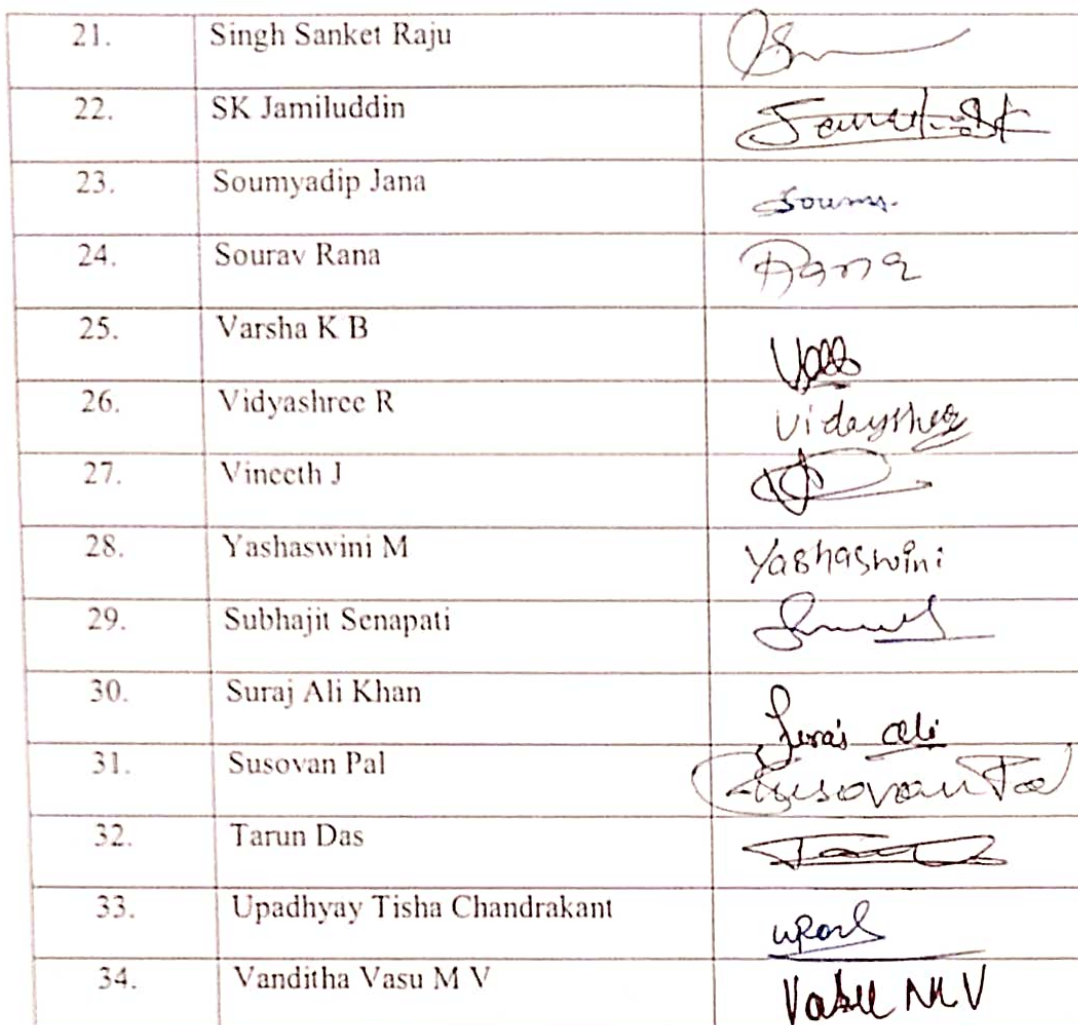 21. Singh Sanket Raju
22. SK Jamiluddin
23. Soumyadip Jana
24. Sourav Rana Rana
25. Varsha K B
26. Vidyashree R
27. Vineeth J
28. Yashaswini M Yashaswini
29. Subhajit Senapati
30. Suraj Ali Khan Suraj Ali
31. Susovan Pal Susovan Pal
32. Tarun Das
33. Upadhyay Tisha Chandrakant
34. Vanditha Vasu M V Vasu M V